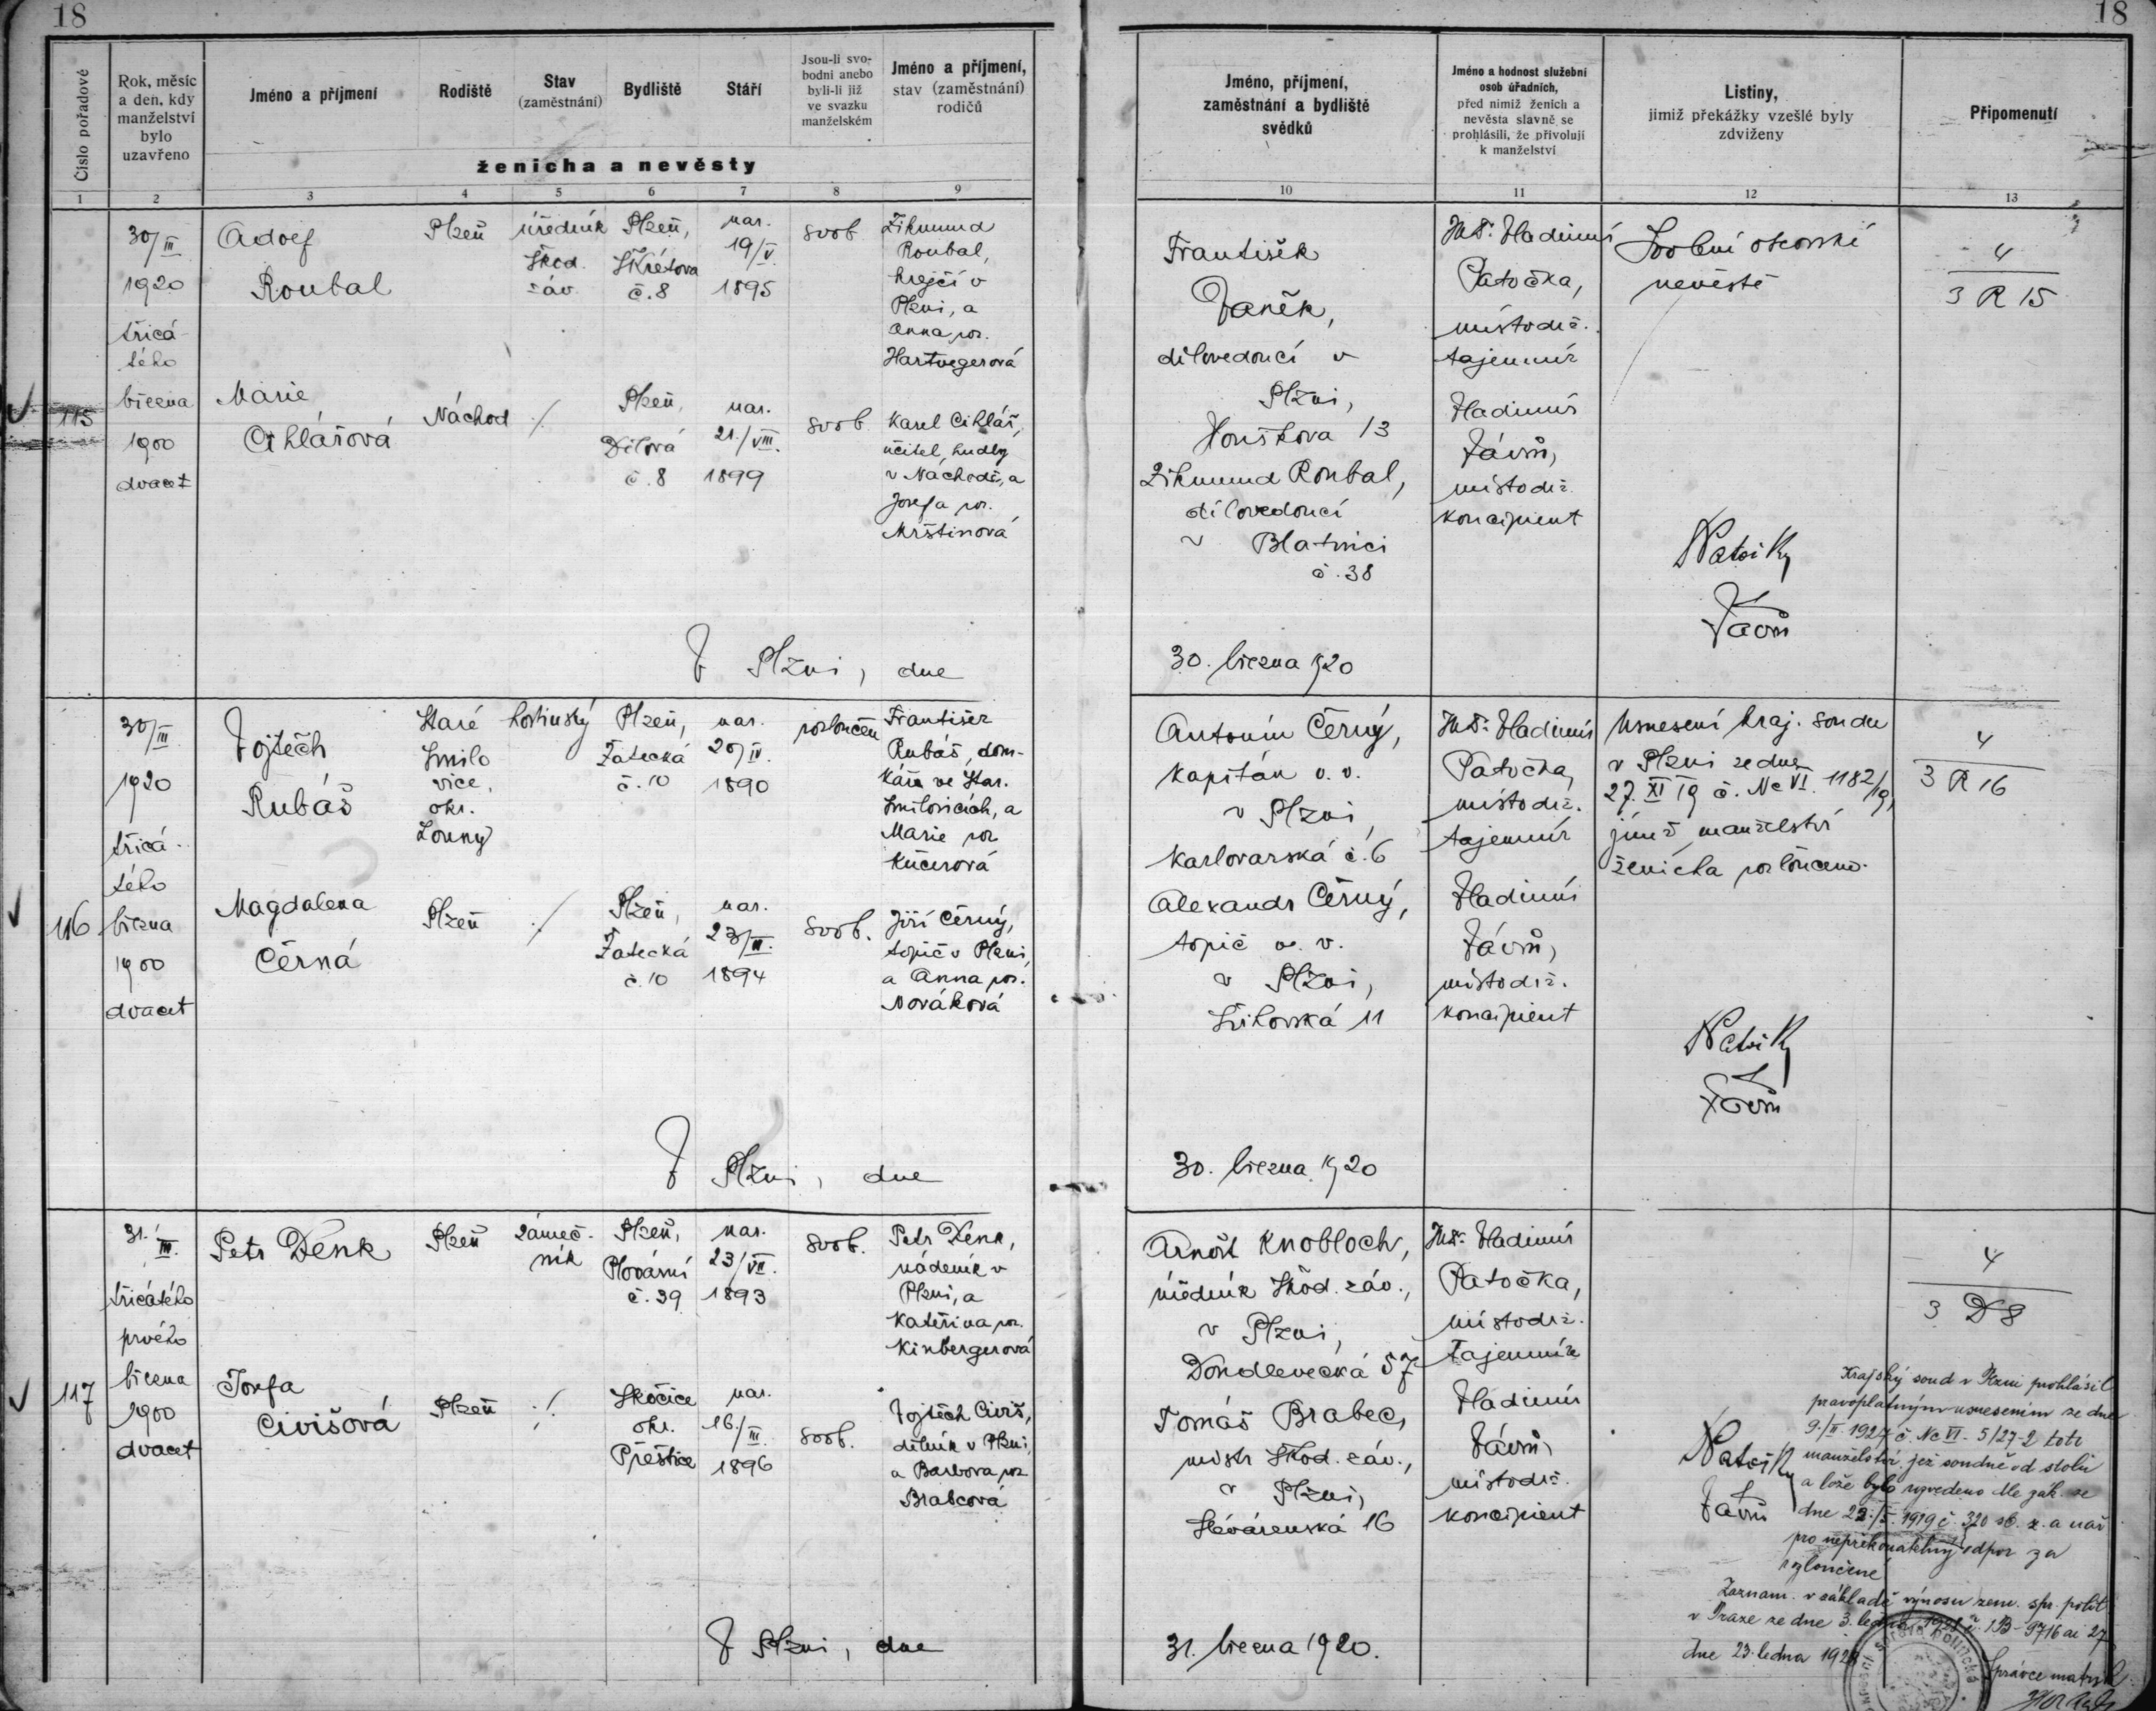 18
18
Číslo pořadové
Rok, měsíc
a den, kdy
manželství
bylo
uzavřeno
Jméno a příjmení
Rodiště
Stav
(zaměstnání)
Bydliště
Stáří
Jsou-li svo-
bodni anebo
byli-li již
ve svazku
manželském
Jméno a příjmení,
stav (zaměstnání)
rodičů
ženicha a nevěsty
1 2 3 4 5 6 7 8 9
Jméno, příjmení,
zaměstnání a bydliště
svědků
Jméno a hodnost služební
osob úřadních,
před nimiž ženich a
nevěsta slavně se
prohlásili, že přivolují
k manželství
Listiny,
jimiž překážky vzešlé byly
zdviženy
Připomenutí
10 11 12 13
115
30/III
1920
třicá-
tého
března
1900
dvacet
Adolf
Roubal
Plzeň
úředník
Škod.
záv.
Plzeň,
Škrétova
č. 8
nar.
19/V.
1895
svob.
Zikmund
Roubal,
krejčí v
Plzni, a
Anna roz.
Hartvegerová
Marie
Cihlářová
Náchod
Plzeň,
Dílová
č. 8
nar.
21./VIII.
1899
svob.
Karel Cihlář,
učitel hudby
v Náchodě, a
Josefa roz.
Mrštinová
František
Vaněk,
dílovedoucí v
Plzni,
Houškova 13
Zikmund Roubal,
dílovedoucí
v Blatnici
č. 38
JUDr. Vladimír
Patočka,
místodrž.
tajemník
Vladimír
Vávrů,
místodrž.
koncipient
Svolení otcovské
nevěstě
Vávrů
4
3 R 15
V Plzni, dne
30. března 1920
116
30/III
1920
třicá-
tého
března
1900
dvacet
Vojtěch
Rubáš
Staré
Smilo
vice,
okr.
Louny
hostinský
Plzeň,
Žatecká
č. 10
nar.
20/IV.
1890
rozloučen
František
Rubáš, dom-
kář ve Star.
Smilovicích, a
Marie roz.
Kučerová
Magdalena
Černá
Plzeň
Plzeň,
Žatecká
č. 10
nar.
1894
svob.
Jiří Černý,
topič v Plzni,
a Anna roz.
Nováková
Antonín Černý,
kapitán v. v.
v Plzni,
Karlovarská č. 6
Alexandr Černý,
topič v. v.
v Plzni,
11
JUDr. Vladimír
Patočka,
místodrž.
tajemník
Vladimír
Vávrů,
místodrž.
koncipient
Usnesení kraj. soudu
v Plzni ze dne
27. XI 19 č. Nc VI. 1182/19,
jímž manželství
ženicha rozloučeno.
Vávrů
4
3 R 16
V Plzni, dne
30. března 1920
117
31./III.
třicátého
prvého
března
1900
dvacet
Petr Denk
Plzeň
zámeč-
ník
Plzeň,
Plovární
č. 39
nar.
23/VII.
1893
svob.
Petr Denk,
nádeník v
Plzni, a
Kateřina roz.
Kinbergerová
Josefa
Civišová
Plzeň
Skočice
okr.
Přeštice
nar.
16./III.
1896
svob.
Vojtěch Civiš,
dělník v Plzni,
a Barbora roz.
Brabcová
Arnošt Knobloch,
úředník Škod. záv.,
v Plzni,
Doudlevecká 57
Tomáš Brabec,
mistr Škod. záv.,
v Plzni,
16
JUDr. Vladimír
Patočka,
místodrž.
tajemník
Vladimír
Vávrů,
místodrž.
koncipient
Vávrů
4
3 D 8
Krajský soud v Plzni prohlásil
pravoplatným usnesením ze dne
9./II. 1927 č. Nc VI - 5/27-2 toto
manželství, jež soudně od stolu
a lože bylo rozvedeno dle zák. ze
dne 22./5. 1919 č. 320 sb. z. a nař.
pro nepřekonatelný odpor za
rozloučené
Zaznam. v základě výnosu zem. spr. polit.
v Praze ze dne 3. ledna
dne 23. ledna
Správce matrik
V Plzni, dne
31. března 1920.